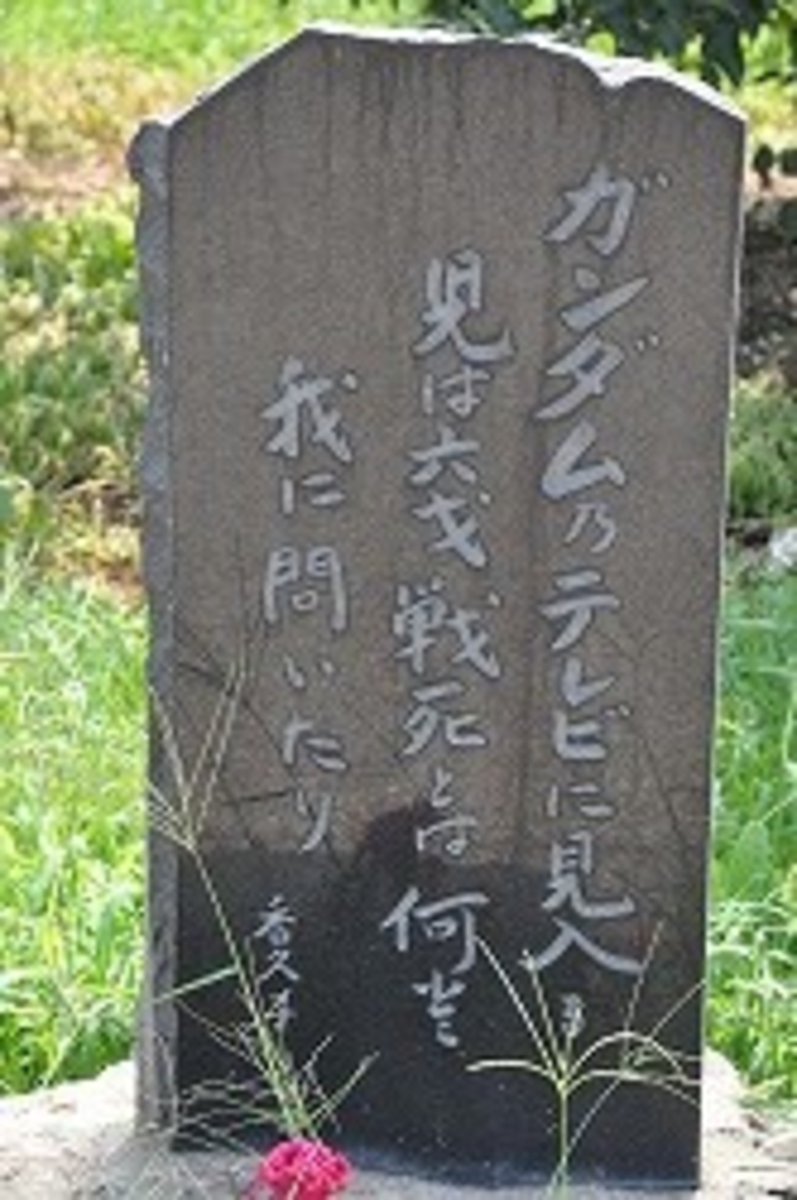 ガンダム乃テレビに見入
児は六才戦死とは何ぞと
我に問いたり